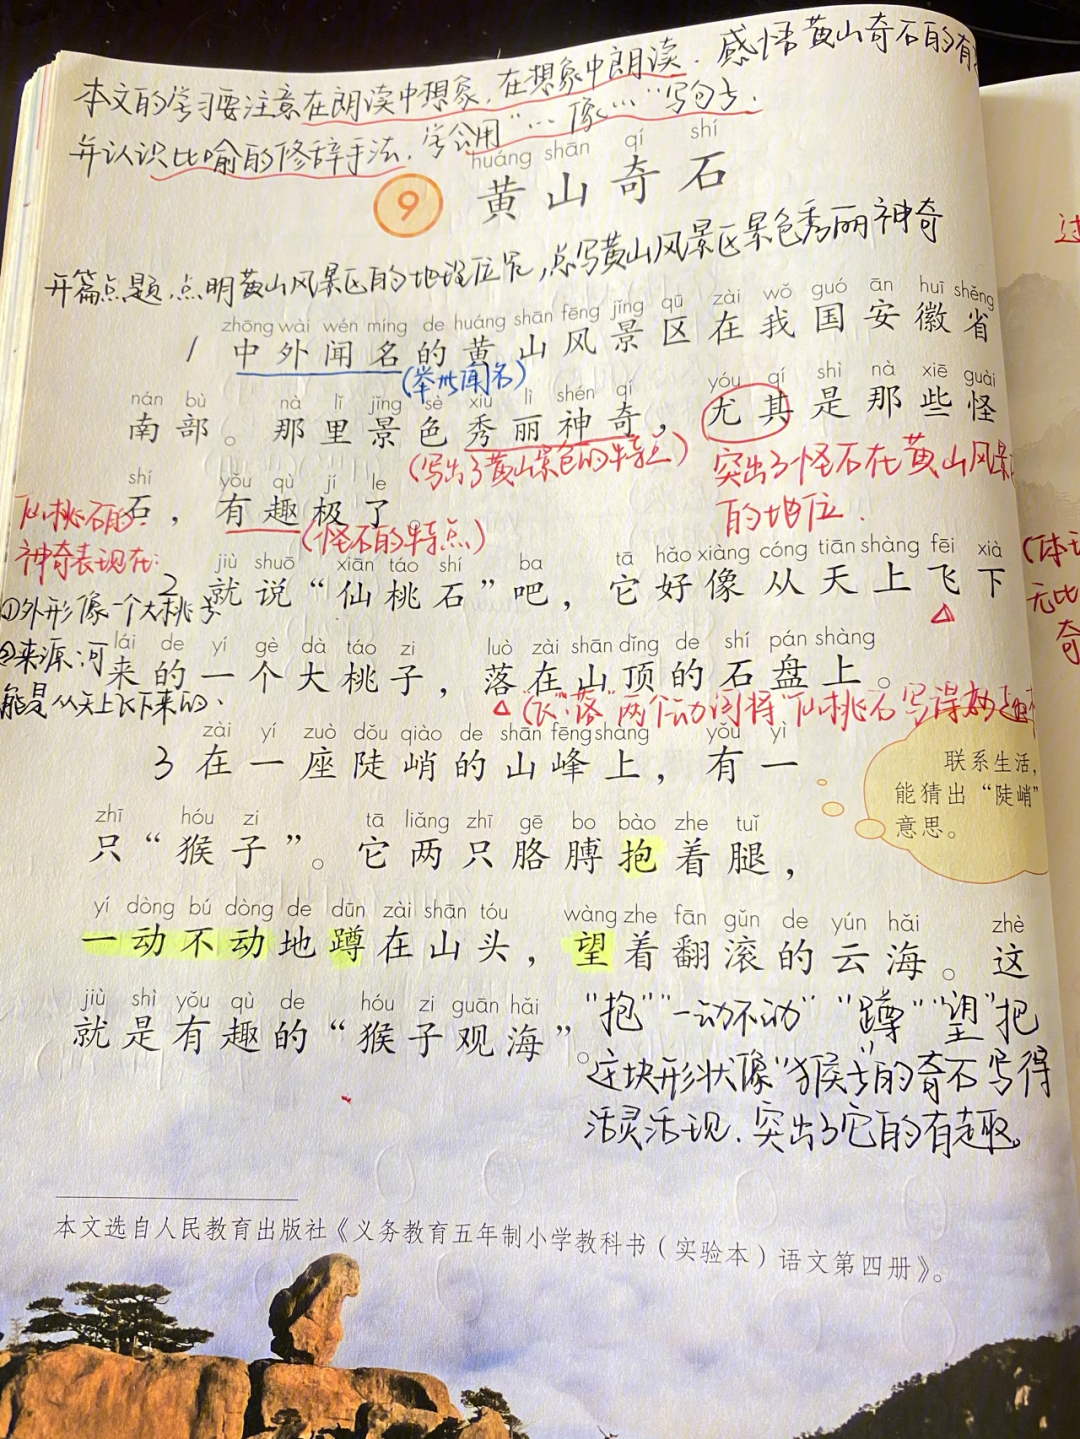 本文的学习要注意在朗读中想象,在想象中朗读.感悟黄山奇石的有
并认识比喻的修辞手法.学会用“…像……”写句子.
huáng shān qí shí
9 黄山奇石
开篇点题,点明黄山风景区的地理位置,总写黄山风景区景色秀丽神奇
zhōng wài wén míng de huáng shān fēng jǐng qū zài wǒ guó ān huī shěng
1 中外闻名的黄山风景区在我国安徽省
(举世闻名)
nán bù nà lǐ jǐng sè xiù lì shén qí yóu qí shì nà xiē guài
南部。那里景色秀丽神奇,尤其是那些怪
(写出了黄山景色的特点)
突出了怪石在黄山风景
的地位.
shí yǒu qù jí le
石,有趣极了
(怪石的特点)
仙桃石的
神奇表现在:
jiù shuō xiān táo shí ba tā hǎo xiàng cóng tiān shàng fēi xià
2 就说“仙桃石”吧,它好像从天上飞下
①外形像一个大桃子
lái de yí gè dà táo zi luò zài shān dǐng de shí pán shàng
来的一个大桃子,落在山顶的石盘上。
②来源:可
能是从天上飞下来的.
(“飞”“落”两个动词将“仙桃石写得妙趣
(体现
无比
奇
过
zài yí zuò dǒu qiào de shān fēng shàng yǒu yì
3 在一座陡峭的山峰上,有一
联系生活,
能猜出“陡峭”
意思。
zhī hóu zi tā liǎng zhī gē bo bào zhe tuǐ
只“猴子”。它两只胳膊抱着腿,
yí dòng bú dòng de dūn zài shān tóu wàng zhe fān gǔn de yún hǎi zhè
一动不动地蹲在山头,望着翻滚的云海。这
jiù shì yǒu qù de hóu zi guān hǎi
就是有趣的“猴子观海”。
“抱”“一动不动”“蹲”“望”把
这块形状像“猴子”的奇石写得
活灵活现.突出了它的有趣。
本文选自人民教育出版社《义务教育五年制小学教科书(实验本)语文第四册》。